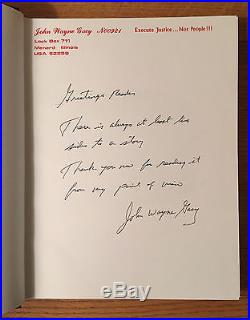 John Wayne Gacy N00921 Execute Justice...Not People!!!
Lock Box 711
Menard Illinois
USA 62259
Greetings Reader
There is always at least two
sides to a story
Thank you now for reading it
from my point of view
John Wayne Gacy